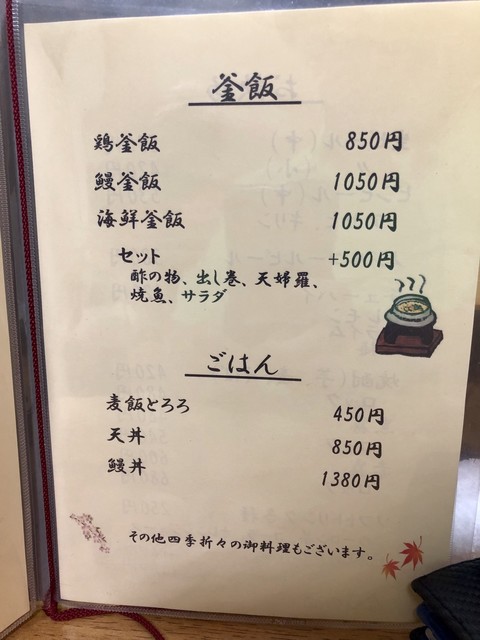 釜飯
鶏釜飯 850円
鰻釜飯 1050円
海鮮釜飯 1050円
セット +500円
酢の物、出し巻、天婦羅、
焼魚、サラダ
ごはん
麦飯とろろ 450円
天丼 850円
鰻丼 1380円
その他四季折々の御料理もございます。